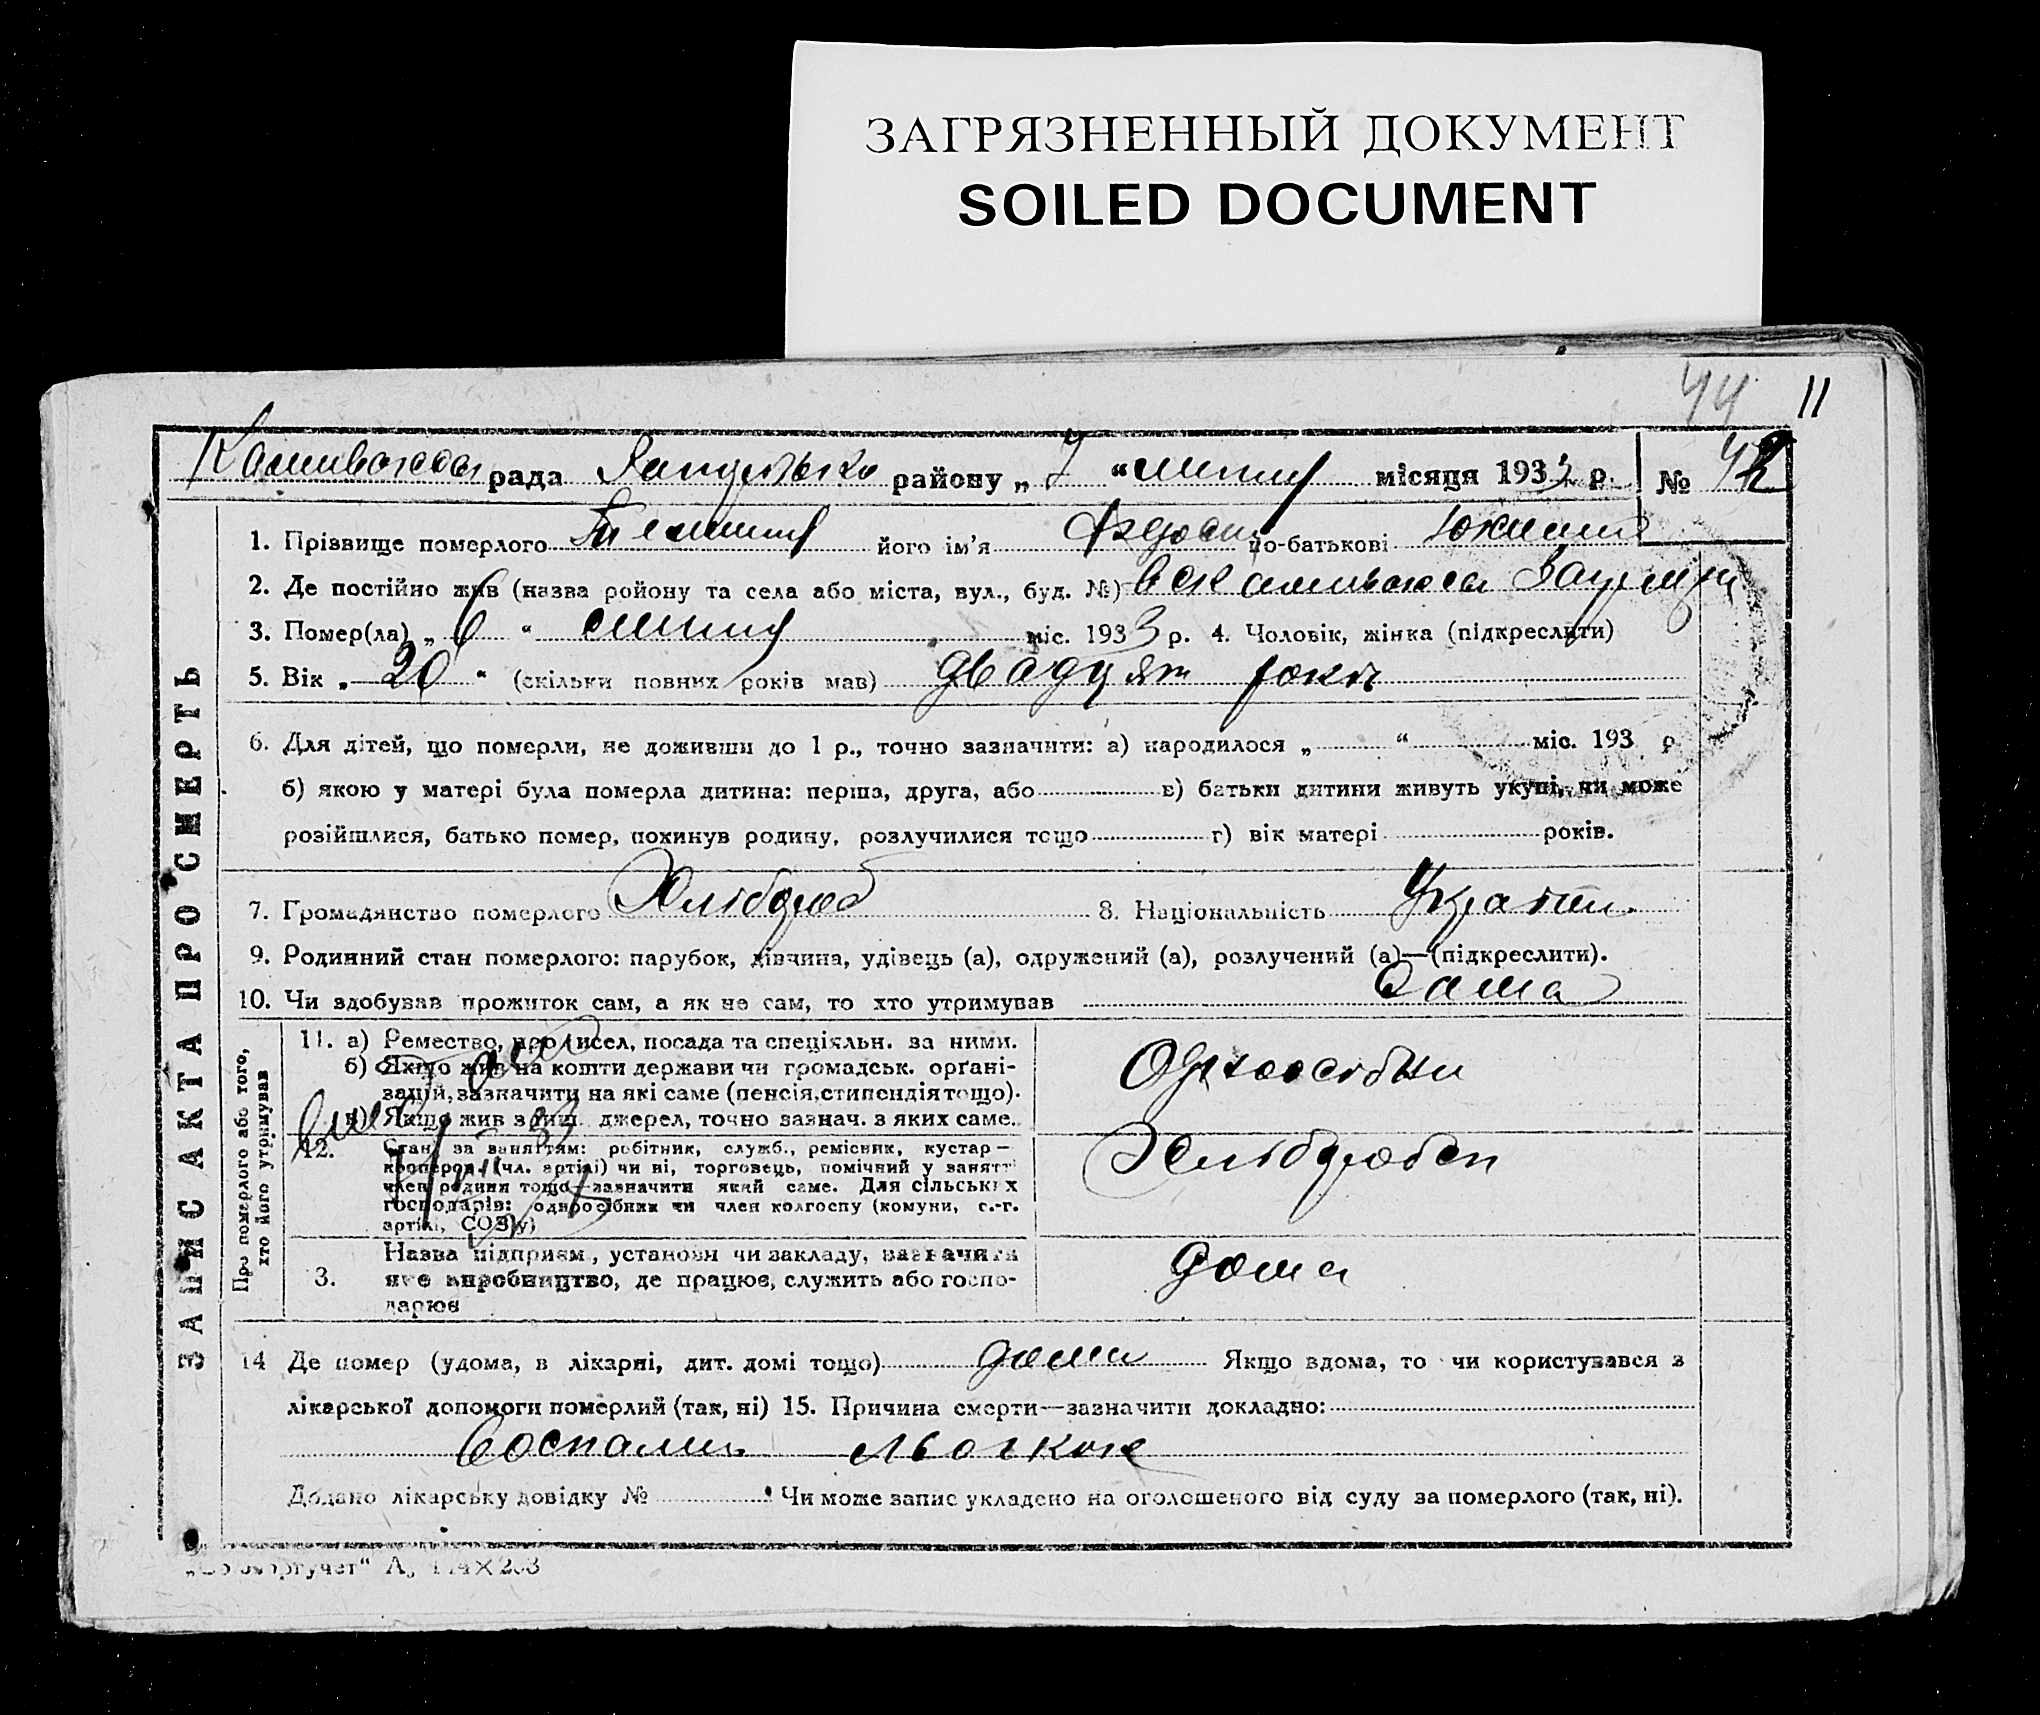 ЗАГРЯЗНЕННЫЙ ДОКУМЕНТ
SOILED DOCUMENT
44 11
рада району „ 7 “ липня місяця 1933 р. № 42
1. Прізвище померлого його ім’я Федосій по-батькові
2. Де постійно жив (назва ройону та села або міста, вул., буд. №)
3. Помер(ла) „ 6 “ липня міс. 1933 р. 4. Чоловік, жінка (підкреслити)
5. Вік „ 20 “ (скільки повних років мав) двадцят
6. Для дітей, що померли, не доживши до 1 р., точно зазначити: а) народилося „ “ міс. 193 р
б) якою у матері була померла дитина: перша, друга, або в) батьки дитини живуть укупі, чи може
розійшлися, батько помер, покинув родину, розлучилися тощо г) вік матері років.
7. Громадянство померлого Хлібороб 8. Національність Україн.
9. Родинний стан померлого: парубок, дівчина, удівець (а), одружений (а), розлучений (а)—(підкреслити).
10. Чи здобував прожиток сам, а як не сам, то хто утримував сама
ЗАПИС АКТА ПРО СМЕРТЬ
Про померлого або того,
хто його утримував
11. а) Ремество, професія, посада та спеціяльн. за ними.
б) Якщо жив на кошти держави чи громадськ. орґані-
зацій, зазначити на які саме (пенсія, стипендія тощо).
в) Якщо жив з инш. джерел, точно зазнач. з яких саме.
12. Стан за заняттям: робітник, служб., ремісник, кустар—
кооперов. (чл. артілі) чи ні, торговець, помічний у занятті
член родини тощо—зазначити який саме. Для сільських
господарів: одноосібник чи член колгоспу (комуни, с.-г.
артілі, СОЗ’у)
3. Назва підприєм., установи чи закладу, зазначити
яке виробництво, де працює, служить або госпо-
дарює
дома
14 Де помер (удома, в лікарні, дит. домі тощо) дома Якщо вдома, то чи користувався з
лікарської допомоги померлий (так, ні) 15. Причина смерти—зазначити докладно:
Воспален
Додано лікарську довідку № Чи може запис укладено на оголошеного від суду за померлого (так, ні).